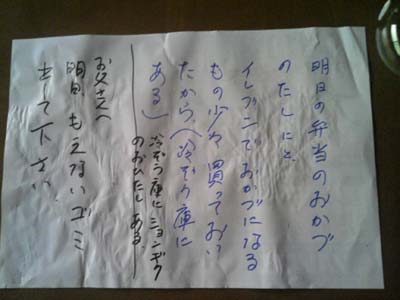 明日の弁当のおかづ
のたしにと、
イレブンでおかづになる
もの少々買っておい
たから、(冷ぞう庫に
ある)
冷ぞう庫にシュンギク
のおひたしある、
お父さんへ
明日、もえないゴミ
出して下さい